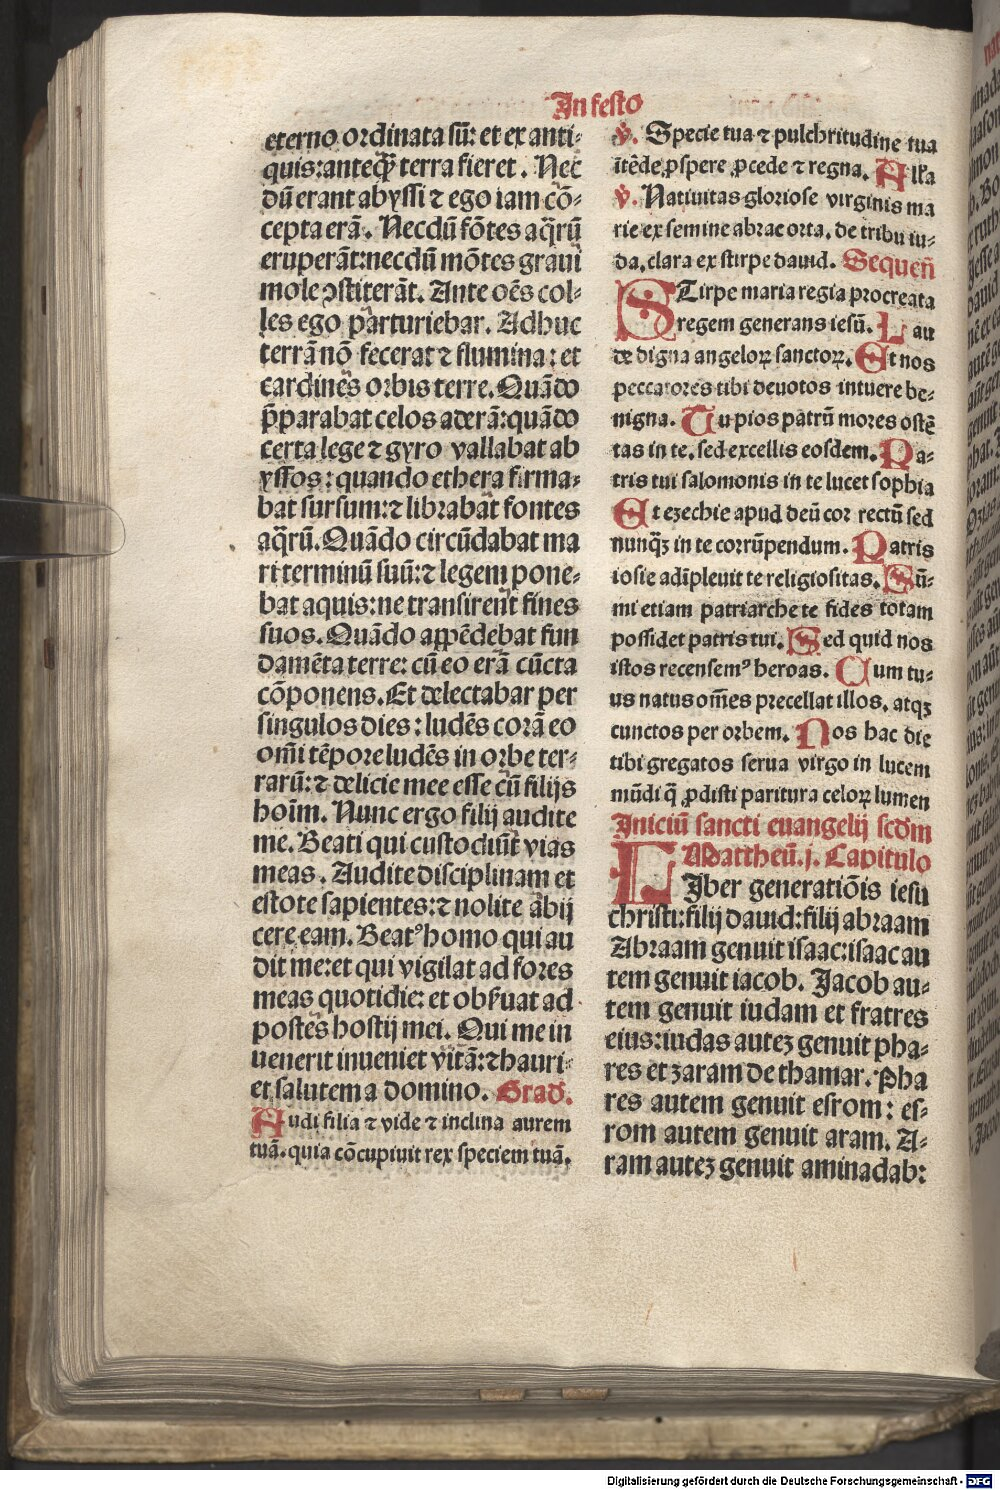 In festo
eterno ordinata sũ: et ex anti-
quis: anteq̃ꝫ terra fieret. Nec
dũ erant abyssi ⁊ ego iam cõ-
cepta erã. Necdũ fõtes aq̃rũ
eruperãt: necdũ mõtes graui
mole ꝯstiterãt. Ante oẽs col-
les ego parturiebar. Adhuc
terrã nõ fecerat ⁊ flumina: et
cardines orbis terre. Quãdo
p̃parabat celos aderã: quãdo
certa lege ⁊ gyro vallabat ab
yssos: quando ethera firma-
bat sursum: ⁊ librabat fontes
aq̃rũ. Quãdo circũdabat ma
ri terminũ suũ: ⁊ legem pone-
bat aquis: ne transirent fines
suos. Quãdo appẽdebat fun
damẽta terre: cũ eo erã cũcta
cõponens. Et delectabar per
singulos dies: ludẽs corã eo
omĩ tẽpore ludẽs in orbe ter-
rarũ: ⁊ delicie mee esse cũ filijs
hoĩm. Nunc ergo filij audite
me. Beati qui custodiũt vias
meas. Audite disciplinam et
estote sapientes: ⁊ nolite abij
cere eam. Beatꝰ homo qui au
dit me: et qui vigilat ad fores
meas quotidie: et obẜuat ad
postes hostij mei. Qui me in
uenerit inueniet vitã: ⁊ hauri-
et salutem a domino. Grad̃.
Audi filia ⁊ vide ⁊ inclina aurem
tuã. quia cõcupiuit rex speciem tuã.
℣. Specie tua ⁊ pulchritudine tua
ĩtẽde, ꝓspere ꝓcede ⁊ regna. Alľa
℣. Natiuitas gloriose virginis ma
rie ex semine abrae orta, de tribu iu-
da, clara ex stirpe dauid. Sequen̄
STirpe maria regia procreata
regem generans iesũ. Lau
de digna angeloꝝ sanctoꝝ. Et nos
peccatores tibi deuotos intuere be-
nigna. Tu pios patrũ mores ostẽ
tas in te, sed excellis eosdem. Pa-
tris tui salomonis in te lucet sophia
Et ezechie apud deũ cor rectũ sed
nunq̃ꝫ in te corrũpendum. Patris
iosie adĩpleuit te religiositas. Sũ-
mi etiam patriarche te fides totam
possidet patris tui. Sed quid nos
istos recensemꝰ heroas. Cum tu-
us natus om̃es precellat illos, atqꝫ
cunctos per orbem. Nos hac die
tibi gregatos serua virgo in lucem
mũdi q̃ ꝓdisti paritura celoꝝ lumen
Iniciũ sancti euangelij scd̃m
Mattheũ. j. Capitulo
LIber generatiõis iesu
christi: filij dauid: filij abraam
Abraam genuit isaac: isaac au
tem genuit iacob. Jacob au-
tem genuit iudam et fratres
eius: iudas auteꝫ genuit pha-
res et zaram de thamar. Pha
res autem genuit esrom: es-
rom autem genuit aram. A-
ram auteꝫ genuit aminadab:
Digitalisierung gefördert durch die Deutsche Forschungsgemeinschaft - DFG